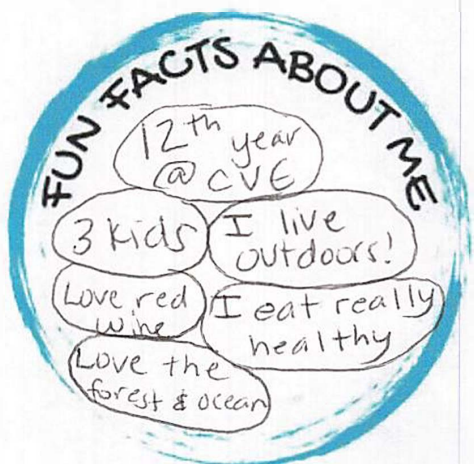 FUN FACTS ABOUT ME
12th year
@ CVE
3 kids
I live
outdoors!
Love red
wine
I eat really
healthy
Love the
forest & ocean